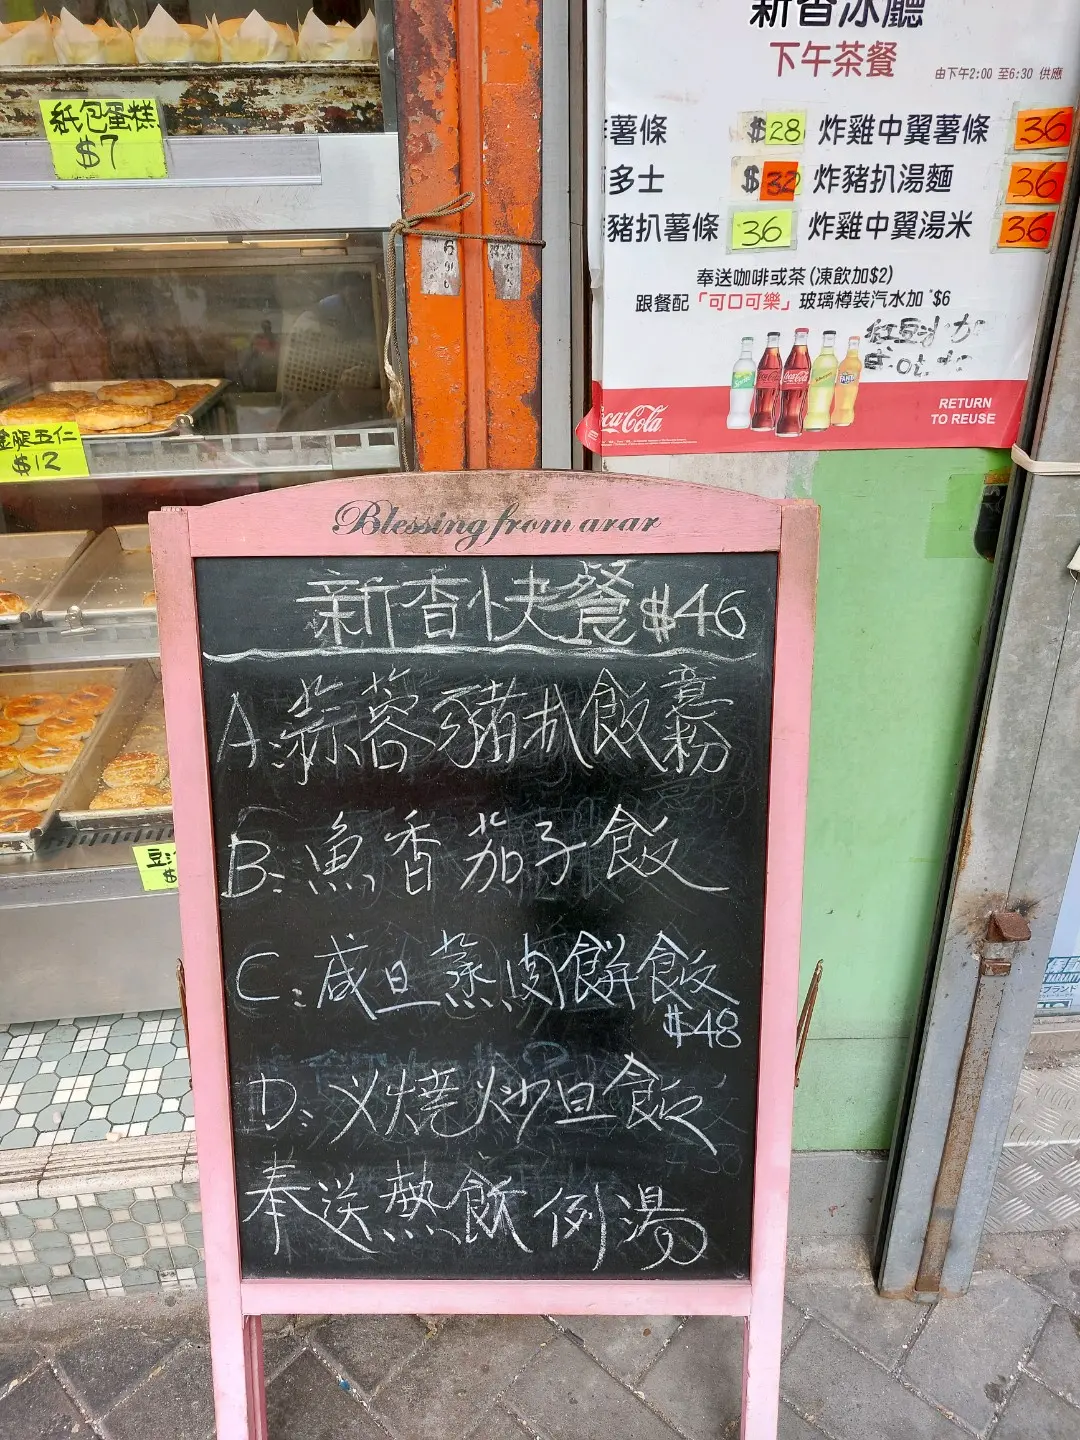 紙包蛋糕
$7
五仁
$12
新香冰廳
下午茶餐
由下午2:00 至6:30 供應
薯條 $28 炸雞中翼薯條 36
多士 $32 炸豬扒湯麵 36
豬扒薯條 36 炸雞中翼湯米 36
奉送咖啡或茶 (凍飲加$2)
跟餐配「可口可樂」玻璃樽裝汽水加 $6
紅豆冰加
Coca-Cola
RETURN
TO REUSE
Blessing from arar
新香快餐 $46
A: 蒜蓉豬扒飯意粉
B: 魚香茄子飯
C: 咸旦蒸肉餅飯
$48
D: 乂燒炒旦飯
奉送熱飲例湯